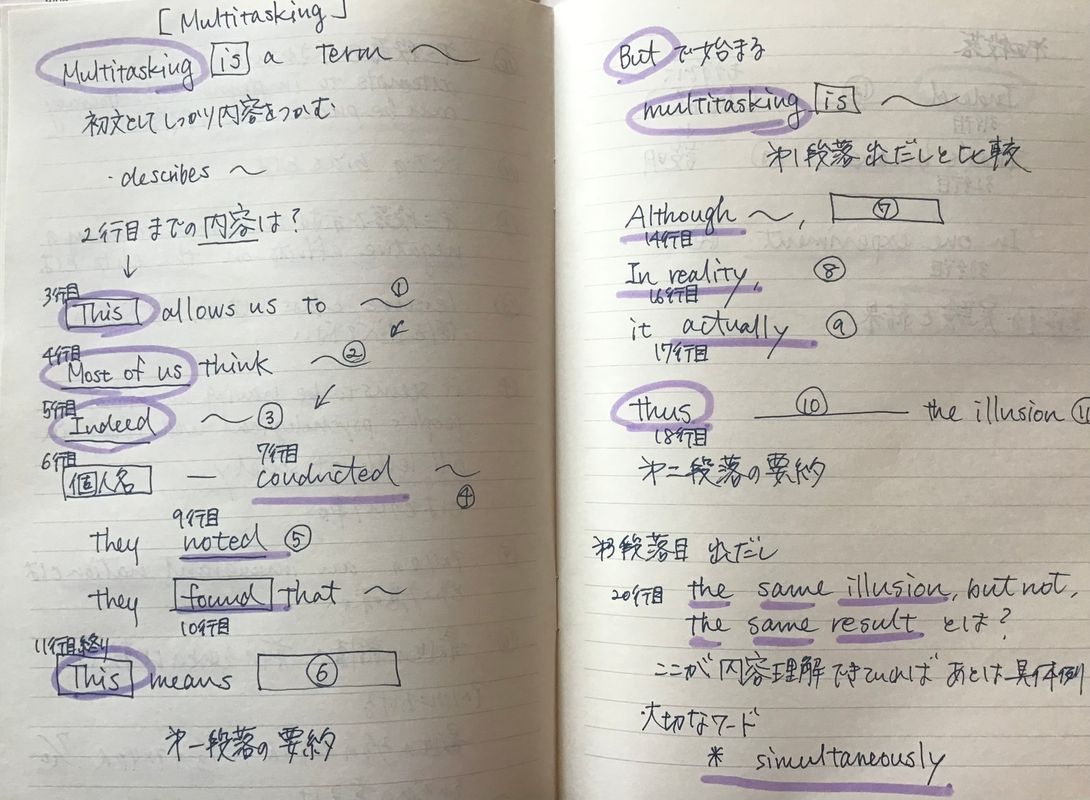 [Multitasking]
Multitasking is a term 〜
初文として しっかり内容をつかむ
・describes 〜
2行目までの内容は？
↓
3行目
This allows us to 〜 ①
4行目
Most of us think 〜 ②
5行目
Indeed 〜 ③
6行目 7行目
個人名 — conducted 〜 ④
9行目
they noted ⑤
they found that 〜
10行目
11行目終り
This means ⑥
第一段落の要約
But で始まる
multitasking is 〜
第1段落出だしと比較
Although 〜, ⑦
14行目
In reality, ⑧
16行目
it actually ⑨
17行目
thus ⑩ the illusion ⑪
18行目
第二段落の要約
第3段落目 出だし
20行目 the same illusion, but not,
the same result とは？
ここが内容理解できていれば あとは具体例
大切なワード
* simultaneously